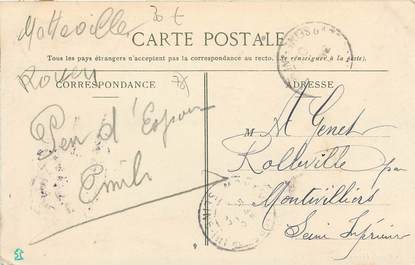 Matteville
30 t
CARTE POSTALE
Tous les pays étrangers n'acceptent pas la correspondance au recto. (Se renseigner à la poste).
Rouen
CORRESPONDANCE
ADRESSE
Peu d'Espoir
Emile
M M Genet
Rolleville par
Montivilliers
Seine Inférieure